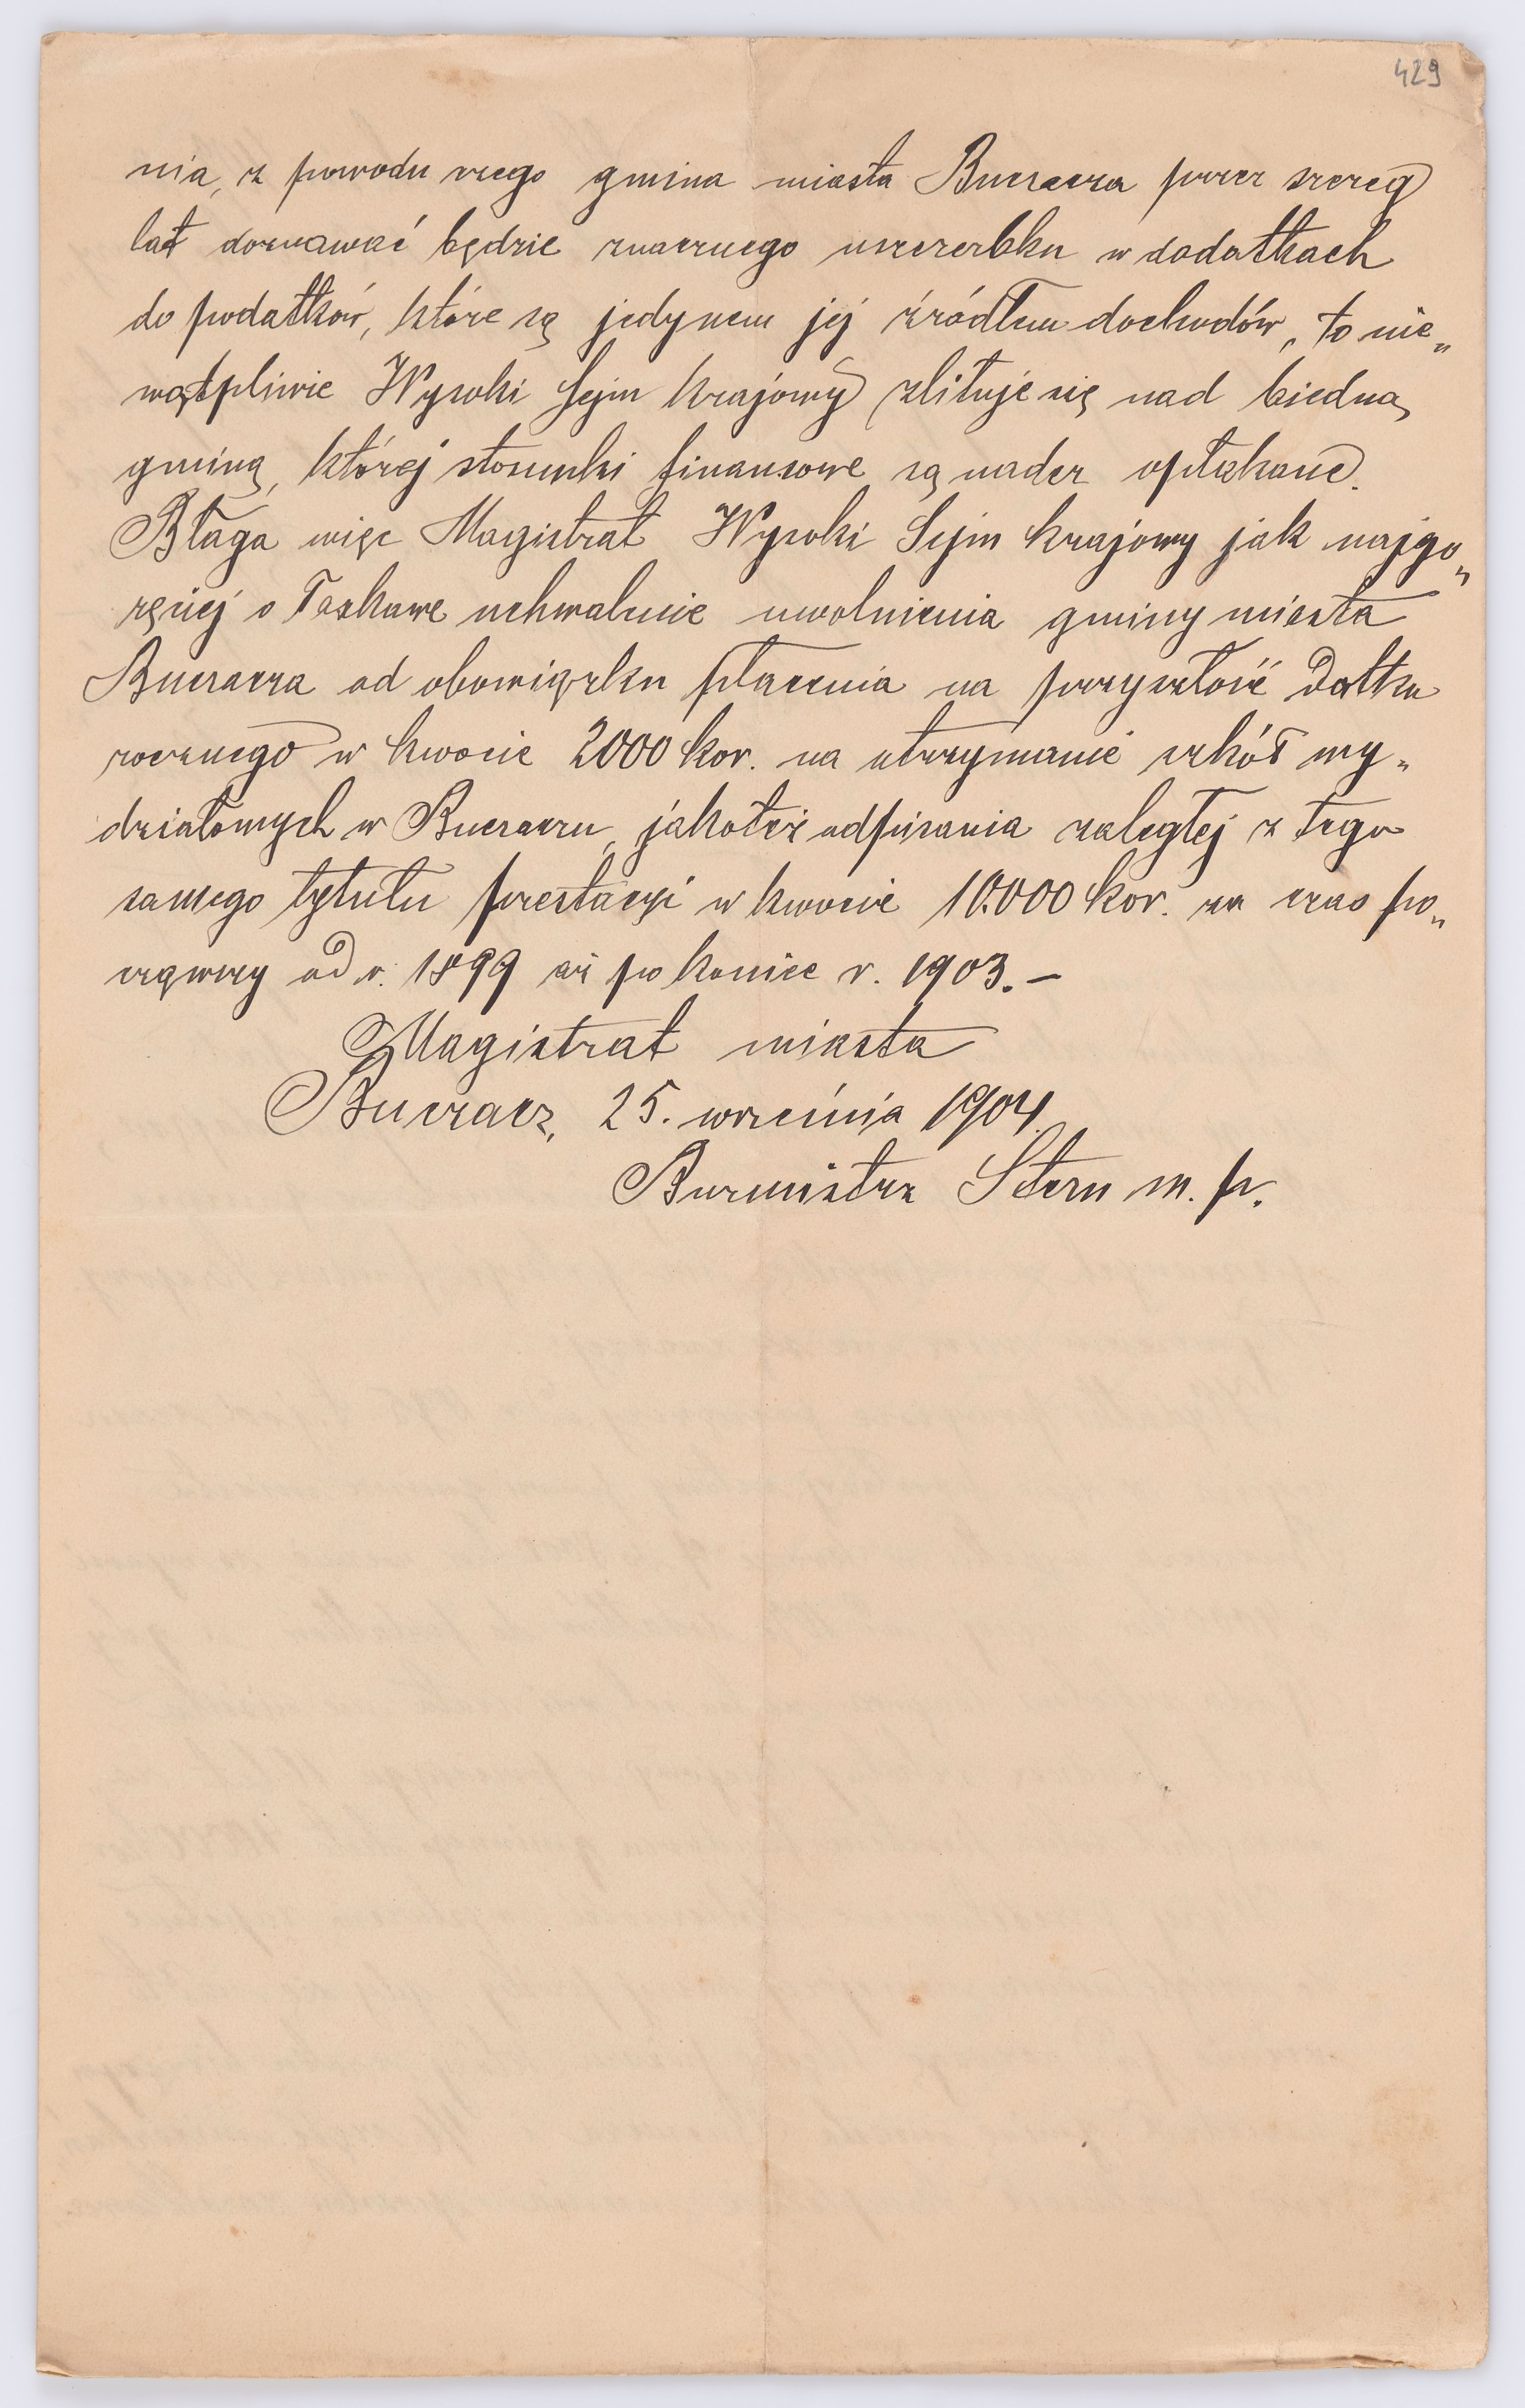 429
nia, z powodu czego gmina miasta Buczacza przez szereg
lat doznawać będzie znacznego uszczerbku w dodatkach
do podatków, które są jedynem jej źródłem dochodów, to nie„
wątpliwie Wysoki Sejm krajowy zlituje się nad biedną
gminą, której stosunki finansowe są nader opłakane.
Błaga więc Magistrat Wysoki Sejm krajowy jak najgo„
ręciej o łaskawe uchwalenie uwolnienia gminy miasta
Buczacza od obowiązku płacenia na przyszłość datku
rocznego w kwocie 2000 kor. na utrzymanie szkół wy„
działowych w Buczaczu, jakoteż odpisania zaległej z tego
samego tytułu prestacyi w kwocie 10.000 kor. za czas po„
cząwszy od r. 1899 aż po koniec r. 1903. –
Magistrat miasta
Buczacz, 25. września 1904.
Burmistrz Stern m. p.